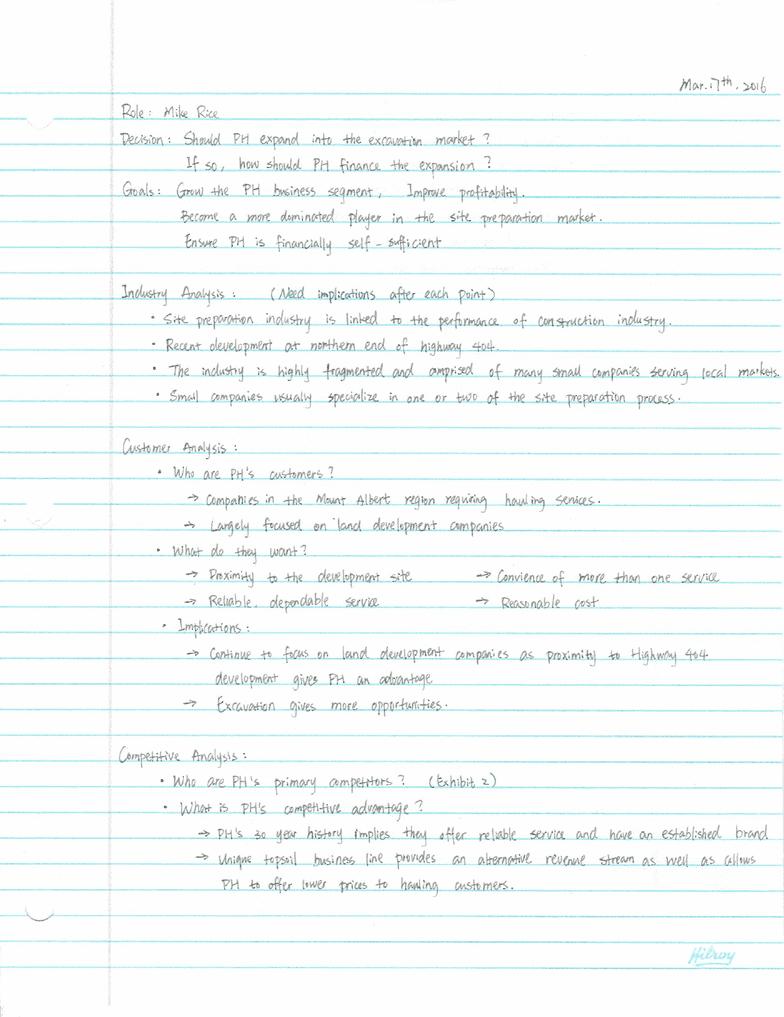 Mar. 17th, 2016
Role: Mike Rice
Decision: Should PH expand into the excavation market?
If so, how should PH finance the expansion?
Goals: Grow the PH business segment, Improve profitability.
Become a more dominated player in the site preparation market.
Ensure PH is financially self-sufficient
Industry Analysis: (Need implications after each point)
• Site preparation industry is linked to the performance of construction industry.
• Recent development at northern end of highway 404.
• The industry is highly fragmented and comprised of many small companies serving local markets.
• Small companies usually specialize in one or two of the site preparation process.
Customer Analysis:
• Who are PH's customers?
→ Companies in the Mount Albert region requiring hauling services.
→ Largely focused on land development companies
• What do they want?
→ Proximity to the development site → Convience of more than one service
→ Reliable, dependable service → Reasonable cost
• Implications:
→ Continue to focus on land development companies as proximity to Highway 404
development gives PH an advantage
→ Excavation gives more opportunities.
Competitive Analysis:
• Who are PH's primary competitors? (Exhibit 2)
• What is PH's competitive advantage?
→ PH's 30 year history implies they offer reliable service and have an established brand
→ Unique topsoil business line provides an alternative revenue stream as well as allows
PH to offer lower prices to hauling customers.
Hilroy